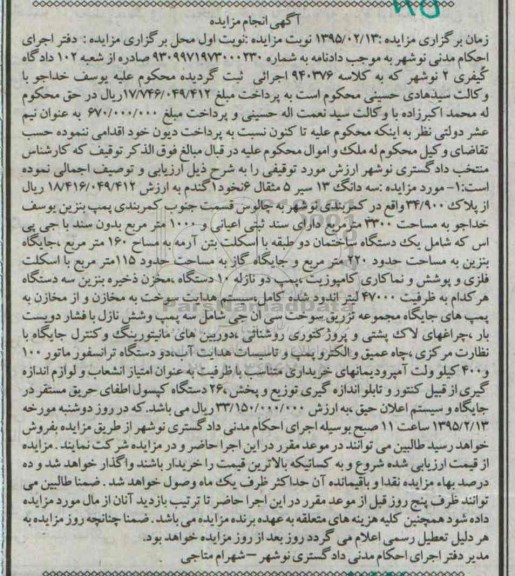 آگهی انجام مزایده
زمان برگزاری مزایده :۱۳۹۵/۰۲/۱۳ نوبت مزایده :نوبت اول محل برگزاری مزایده : دفتر اجرای
احکام مدنی نوشهر به موجب دادنامه به شماره ۹۳۰۹۹۷۱۹۷۳۰۰۰۲۳۰ صادره از شعبه ۱۰۲ دادگاه
کیفری ۲ نوشهر که به کلاسه ۹۴۰۳۷۶ اجرائی ثبت گردیده محکوم علیه یوسف خداجو با
وکالت سیدهادی حسینی محکوم است به پرداخت مبلغ ۱۷/۷۴۶/۰۴۹/۴۱۲ریال در حق محکوم
له محمد اکبرزاده با وکالت سید نعمت اله حسینی و پرداخت مبلغ ۶۷۰/۰۰۰/۰۰۰ به عنوان نیم
عشر دولتی نظر به اینکه محکوم علیه تا کنون نسبت به پرداخت دیون خود اقدامی ننموده حسب
تقاضای وکیل محکوم له ملک و اموال محکوم علیه در قبال مبالغ فوق الذکر توقیف که کارشناس
منتخب دادگستری نوشهر ارزش مورد توقیفی را به شرح ذیل ارزیابی و توصیف اجمالی نموده
است:۱- مورد مزایده :سه دانگ ۱۳ سیر ۵ مثقال ۶نخود۱گندم به ارزش ۱۸/۴۱۶/۰۴۹/۴۱۲ ریال
از پلاک ۳۴/۹۰۰واقع در کمربندی نوشهر به چالوس قسمت جنوب کمربندی پمپ بنزین یوسف
خداجو به مساحت ۳۳۰۰ مترمربع دارای سند ثبتی اعیانی و ۱۰۰۰ متر مربع بدون سند با جی پی
اس که شامل یک دستگاه ساختمان دو طبقه با اسکلت بتن آرمه به مساح ۱۶۰ متر مربع ،جایگاه
بنزین به مساحت حدود ۲۲۰ متر مربع و جایگاه گاز به مساحت حدود ۱۱۵متر مربع با اسکلت
فلزی و پوشش و نماکاری کامپوزیت ،پمپ دو نازله ۱۰ دستگاه ،مخزن ذخیره بنزین سه دستگاه
هر کدام به ظرفیت ۴۷۰۰۰ لیتر اندود شده کامل،سیستم هدایت سوخت به مخازن و از مخازن به
پمپ های جایگاه مجموعه تزریق سوخت سی ان جی شامل سه پمپ وشش نازل با فشار دویست
بار ،چراغهای لاک پشتی و پروژکتوری روشنائی ،دوربین های مانیتورینگ وکنترل جایگاه با
نظارت مرکزی ،چاه عمیق و الکترو پمپ و تاسیسات هدایت آب،دو دستگاه ترانسفور ماتور ۱۰۰
و۴۰۰ کیلو ولت آمپرودیمانهای خریداری متناسب با ظرفیت به عنوان امتیاز انشعاب و لوازم اندازه
گیری از قبیل کنتور و تابلو اندازه گیری توزیع و پخش ،۲۶ دستگاه کپسول اطفای حریق مستقر در
جایگاه و سیستم اعلان حیق ،به ارزش ۳۳/۱۵۰/۰۰۰/۰۰۰ ریال می باشد.که در روز دوشنبه مورخه
۱۳۹۵/۲/۱۳ ساعت ۱۱ صبح بوسیله اجرای احکام مدنی دادگستری نوشهر از طریق مزایده بفروش
خواهد رسید طالبین می توانند در موعد مقرر در این اجرا حاضر و در مزایده شرکت نمایند . مزایده
از قیمت ارزیابی شده شروع و به کسانیکه بالاترین قیمت را خریدار باشند واگذار خواهد شد و ده
درصد بهاء مزایده نقدا و باقیمانده آن حداکثر ظرف یک ماه وصول خواهد شد . ضمنا طالبین می
توانند ظرف پنج روز قبل از موعد مقرر در این اجرا حاضر تا ترتیب بازدید آنان از مال مورد مزایده
داده شود همچنین کلیه هزینه های متعلقه به عهده برنده مزایده می باشد . ضمنا چنانچه روز مزایده به
هر دلیل تعطیل رسمی اعلام می گردد روز بعد از روز مزایده خواهد بود.
مدیر دفتر اجرای احکام مدنی دادگستری نوشهر –شهرام متاجی